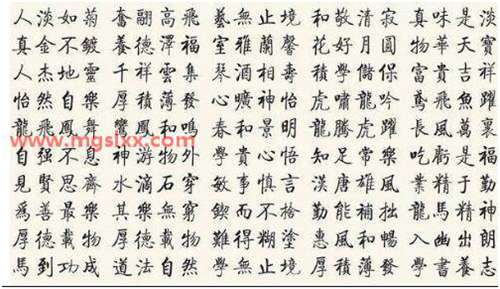 人淡如菊 奮翮高飛 藝無止境 和敬清寂 真味是淡
真金不鍍 養德澤福 室雅蘭馨 花好月圓 物華天寶
人杰地靈 千祥雲集 琴酒相壽 積學儲 富貴吉祥
怡然自樂 厚積薄發 心曠神怡 虎嘯龍吟 鳶飛魚躍
龍飛鳳舞 鸞鳳和鳴 春和景明 龍騰虎躍 長風萬裏
www.mgslxx.com
自强不息 神游物外 學貴心 知足常樂 吃虧是福
見賢思齊 水滴石穿 敏事慎言 漢唐雄風 業精于勤
爲善最樂 其樂無窮 鍥而不捨 勤能補拙 龍馬精神
厚德載物 難得糊塗 惠風和暢 入幽出朗
馬到功成 道法自然 學無止境 厚積薄發 學書養志